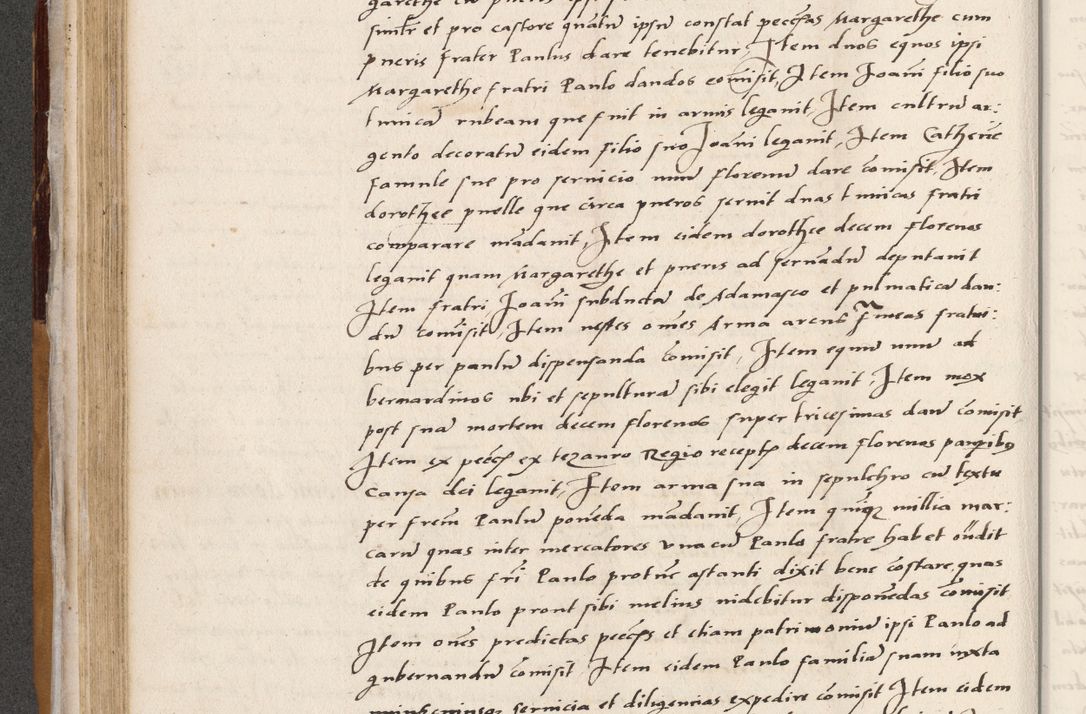 simlr et pro castore quātū ipsū constat pecc̄ias Margarethe cum
pueris frater Paulus dare tenebitur, Item duos equos ipsi
Margarethe fratri Paulo dandos com̄isit, Item Joām filio suo
tunicā rubeam que fuit in armis legauit, Item cultrū ar:
gento decoratū eidem filio suo Joāni legauit, Item Catherīe
famule sue pro seruicio unū florenū dare com̄isit, Item
dorothee puelle que circa pueros seruit duas tunicas fratri
comparare mādauit, Item eidem dorothee decem florenos
legauit quam Margarethe et pueris ad seruādū deputauit
Item fratri Joām subductā de Adamasco et puluiaticā dan:
dū com̄isit, Item uestes om̄es Arma arcus s̄meas fratri:
bus per paulū dispensanda com̄isit, Item equū unū ad
bernardinos ubi et sepulturā sibi elegit legauit, Item mox
post suā mortem decem florenos super tricesimas darī com̄isit
Item ex pecc̄ijs ex tezauro Regio receptis decem florenos pauperibus
causa dei legauit, Item arma sua in sepulchro cū textu
per frēm Paulū ponēda mādauit, Item quīqz millia mar:
carū quas inter mercatores vna cū Paulo fratre habet oūdit
de quibus frī Paulo protūc astanti dixit bene cōstare, quas
eidem Paulo prout sibi melius uidebitur disponēdas com̄isit
Item om̄es predictas pecc̄ijs et etiam patrimoniū ipsi Paulo ad
gubernandū com̄isit Item eidem Paulo familiā suam iuxta
seruicia et diligencias expedire com̄isit Item eidem